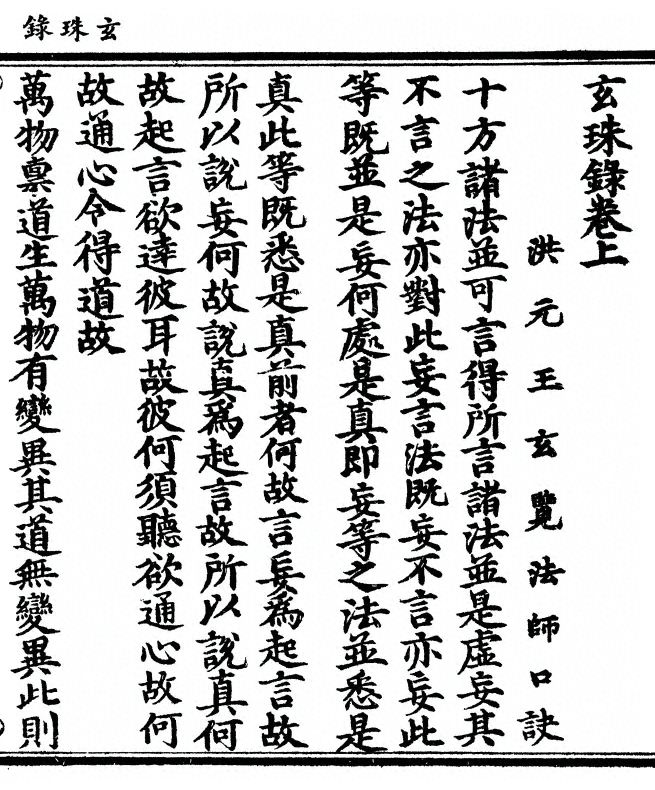 玄珠錄
玄珠錄卷上
洪元王玄覽法師口訣
十方諸法並可言得所言諸法並是虛妄其
不言之法亦對此妄言法既妄不言亦妄此
等既並是妄何處是真即妄等之法並悉是
真此等既悉是真前者何故言妄為起言故
所以說妄何故說真為起言故所以說真何
故起言欲達彼耳故彼何須聽欲通心故何
故通心令得道故
萬物禀道生萬物有變異其道無變異此則